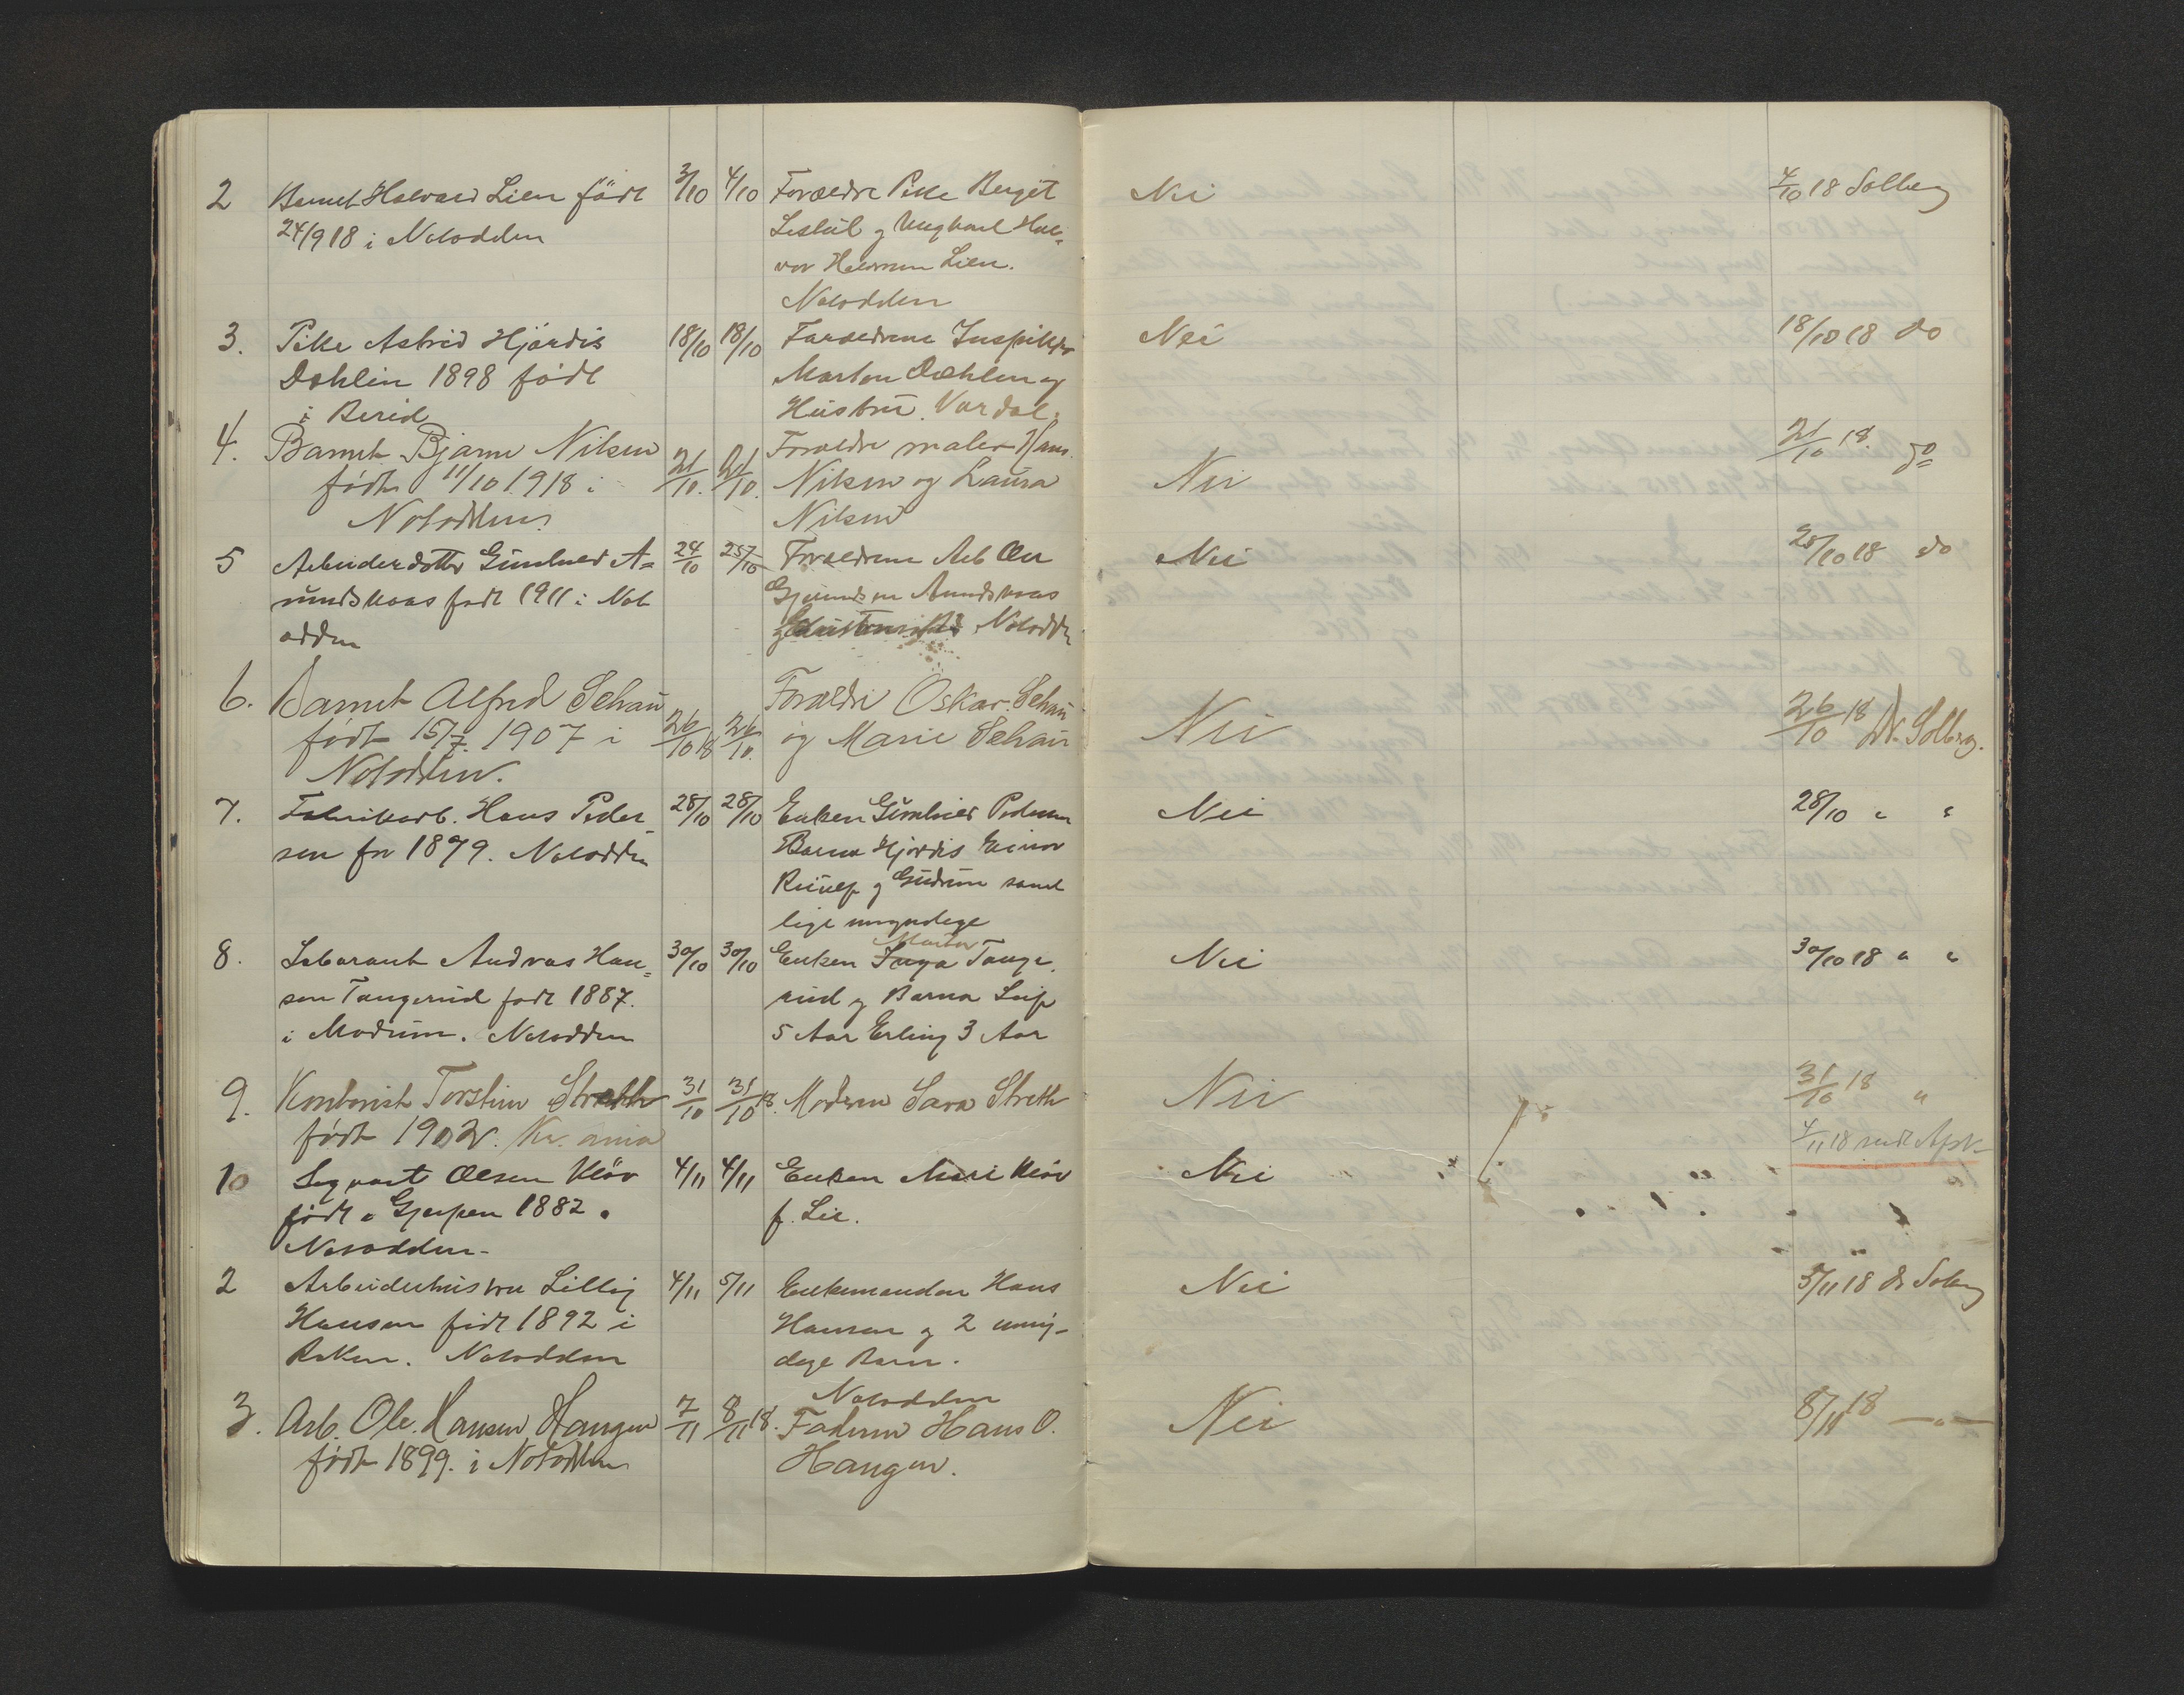 2 Barnet Halvard Lien född 3/10 4/10 Forældre Pike Berget Nei 4/10 18 Solberg
24/9 18 i Notodden og Ungkarl Hal=
vor Halvorsen Lien.
Notodden
3. Pike Astrid Hjördis 18/10 18/10 Forældrene Inspektør Nei 18/10 18 do
Dæhlin 1898 född Marton Dæhlen og
i Berid Hustru. Vardal.
4. Barnet Bjarne Nilsen 21/10. 21/10. Forældre maler Hans Nei 21/10 18. do
födt 11/10 1918 i Nilsen og Laura
Notodden Nilsen
5 Arbeiderdatter Gunhild A= 24/10 25/10 Forældrene Arb Ole Nei 25/10 18 do
mundsmoas født 1911 i Not Gjermundsen Amundsmoas
odden Notodden
6. Barnet Alfred Schau 26/10 18 26/10. Forældre Oskar Schau Nei 26/10 18 Dr. Solberg.
født 15/7. 1907 i og Marie Schau
Notodden.
7. Fabrikarb. Hans Peder= 28/10 28/10 Enken Gunhild Pedersen Nei 28/10 " "
sen før 1879. Notodden Barna Hjørdis Einar
og Gudrun samt
lige umyndige
8. Laborant Andreas Han= 30/10 30/10 Enken Inga Tange Nei 30/10 18 " "
sen Tangerud født 1887. rud og Barna Leif
i Modum. Notodden 5 Aar Erling 3 Aar
9. Kontorist Torstein Streth 31/10 31/10 18. Moderen Sara Streth Nei 31/10 18 "
född 1902. Kr.ania 4/11 18 sendt
10 Sigvart Olsen Kløv 4/11 4/11 Enken Mari Kløv Nei
född i Gjerpen 1882. f. Lie.
Notodden.
2 Arbeiderhustru Lilly 4/11 5/11 Enkemanden Hans Nei 5/11 18 dr Solberg
Hansen född 1892 i Hansen og 2 umyn-
Røken. Notodden dige Barn.
Notodden
3. Arb. Ole Hansen Haugen 7/11 8/11 18. Faderen Hans O. Nei 8/11 18 —"—
född 1899. i Notodden Haugen.